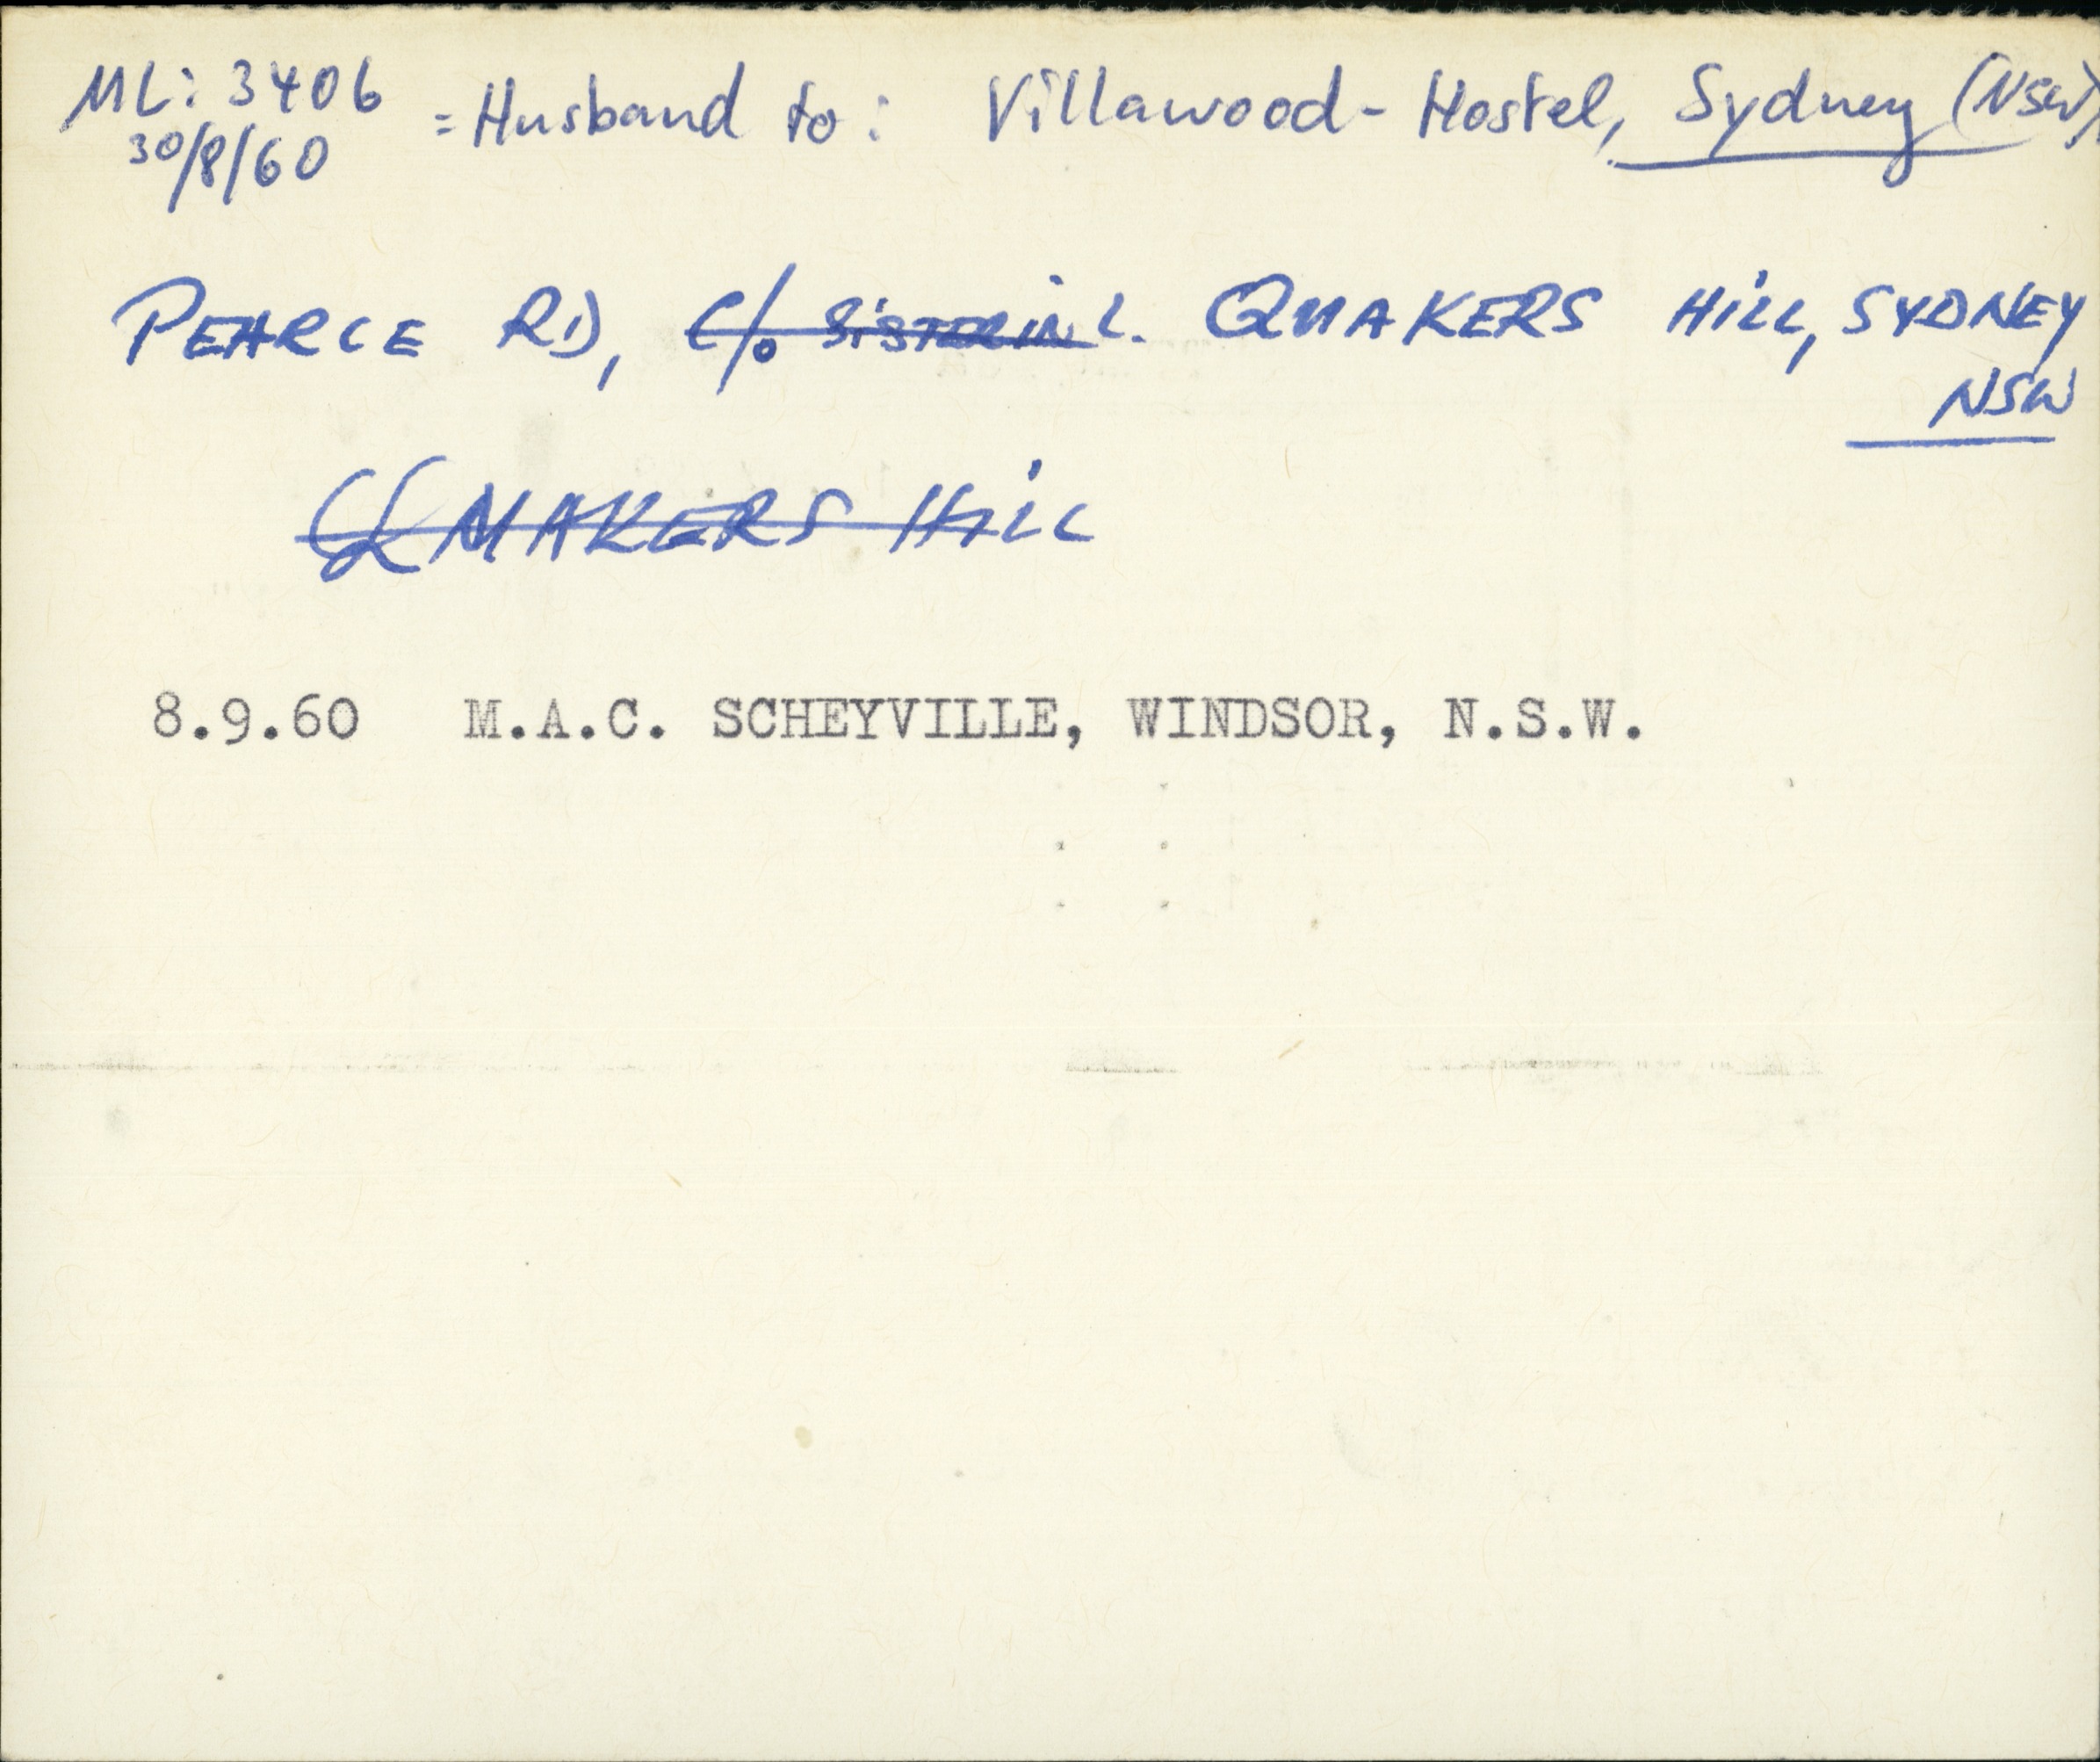 ML: 3406 = Husband to: Villawood - Hostel, Sydney (NSW)
30/8/60
PEARCE RD, C/o SISTER IN L. QUAKERS HILL, SYDNEY
NSW
QUAKERS HILL
8.9.60 M.A.C. SCHEYVILLE, WINDSOR, N.S.W.